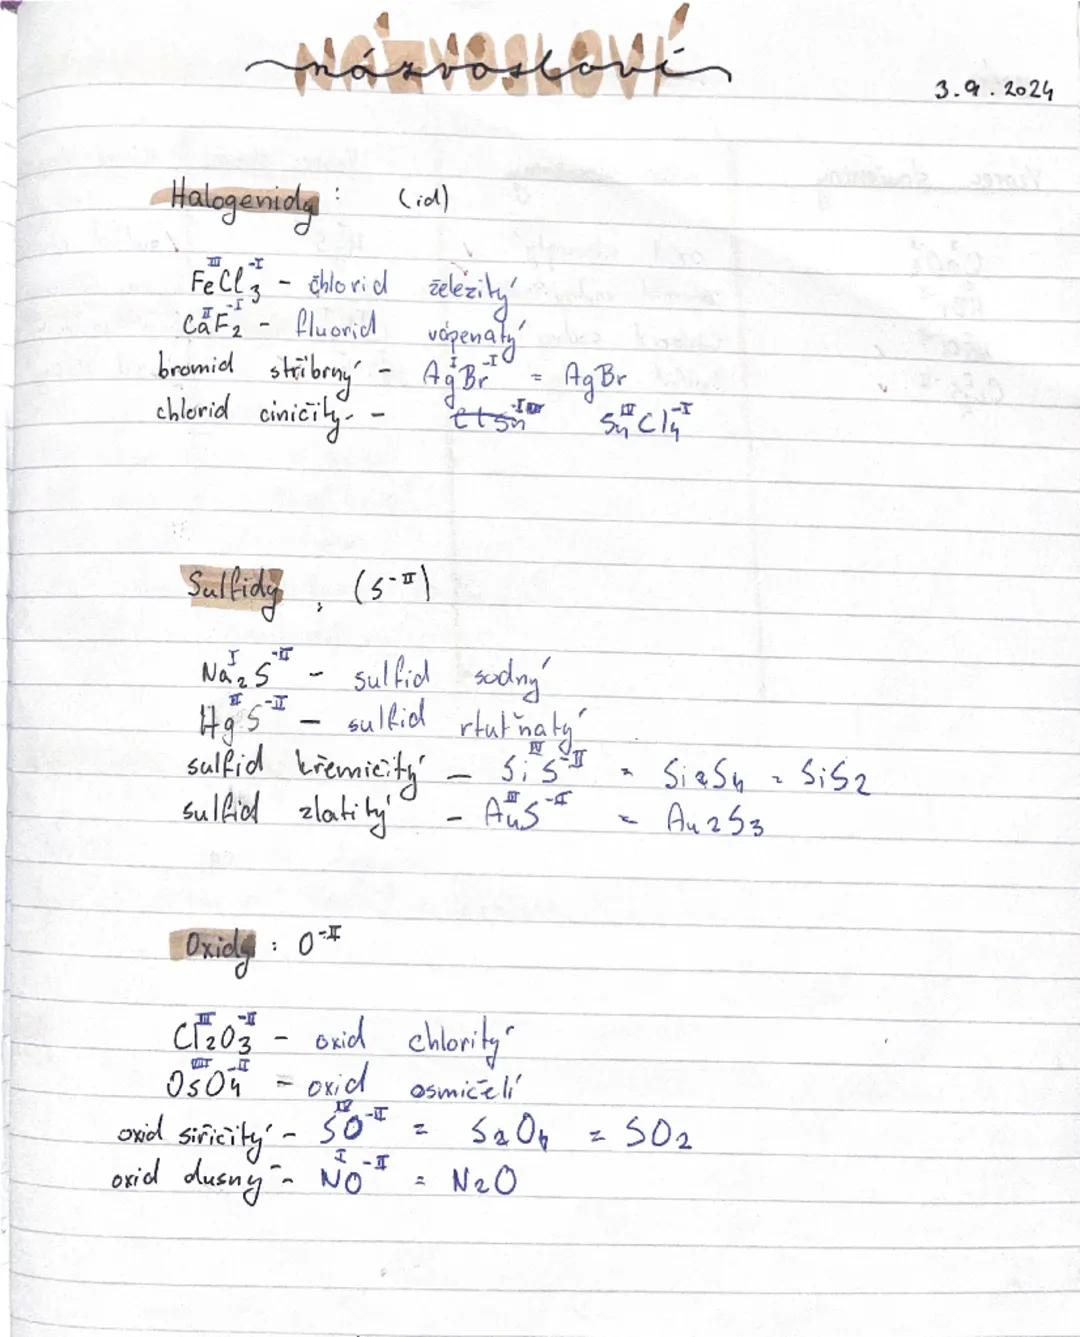 názvosloví
3.9.2024
Halogenidy : (id)
Fe^III Cl3^-I - chlorid železitý
Ca^II F2^-I - fluorid vápenatý
bromid stříbrný - Ag^I Br^-I = AgBr
chlorid ciničitý - Sn^IV Cl4^-I
Sulfidy : (S^-II)
Na2^I S^-II - sulfid sodný
Hg^II S^-II - sulfid rtuťnatý
sulfid křemičitý - Si^IV S^-II = Si2S4 = SiS2
sulfid zlatitý - Au^III S^-II = Au2S3
Oxidy : O^-II
Cl2^III O3^-II - oxid chloritý
Os^VIII O4^-II - oxid osmičelí
oxid siřičitý - S^IV O^-II = S2O4 = SO2
oxid dusný - N^I O^-II = N2O